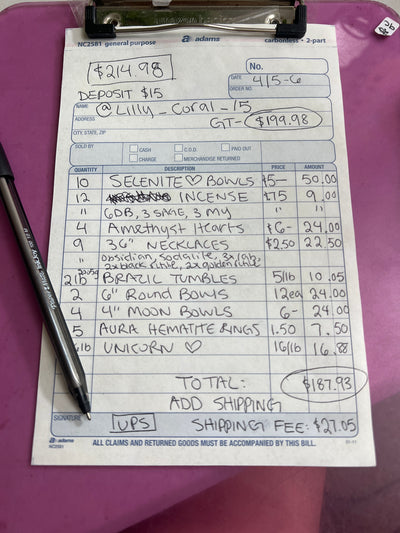 NC2581 general purpose
adams
carbonless • 2-part
$214.98
No.
DATE 4/5-6
DEPOSIT $15
ORDER NO.
NAME @Lilly_Coral_15
ADDRESS
GT- $199.98
CITY, STATE, ZIP
SOLD BY CASH C.O.D. PAID OUT
CHARGE MERCHANDISE RETURNED
QUANTITY DESCRIPTION PRICE AMOUNT
10 SELENITE ♡ BOWLS $5- 50.00
12 INCENSE $.75 9.00
" 6DB, 3 SAME, 3 MY " "
4 Amethyst Hearts $6- 24.00
9 36" NECKLACES $2.50 22.50
" obsidian, sodalite,
2x black rutile, 2x golden rutile
2lb BRAZIL TUMBLES 5/lb 10.05
2 6" Round Bowls 12ea 24.00
4 4" MOON BOWLS 6- 24.00
5 AURA HEMATITE RINGS 1.50 7.50
UNICORN ♡ 16/lb 16.88
TOTAL: $187.93
ADD SHIPPING
SIGNATURE UPS SHIPPING FEE: $27.05
adams
NC2581
ALL CLAIMS AND RETURNED GOODS MUST BE ACCOMPANIED BY THIS BILL.